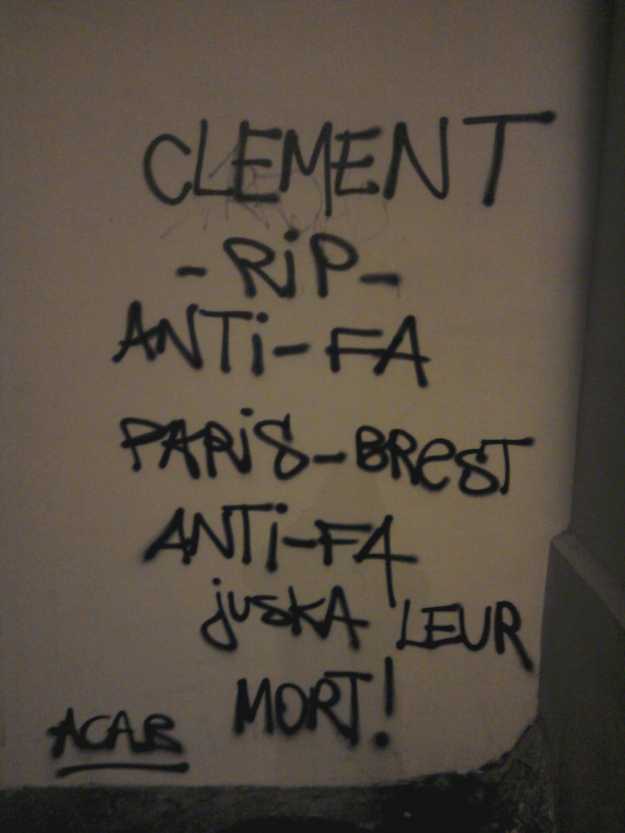 CLEMENT
- RiP -
ANTi-FA
PARiS-BREST
ANTi-FA
juskA LEUR
MORT!
ACAB